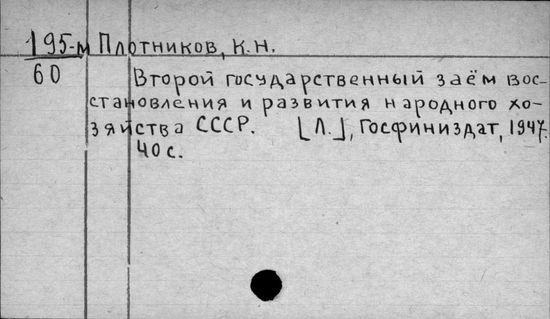 195-м Плотников, К.Н.
60 Второй государственный заём вос-
становления и развития народного хо-
зяйства СССР. [Л.], Госфиниздат, 1947.
40 с.